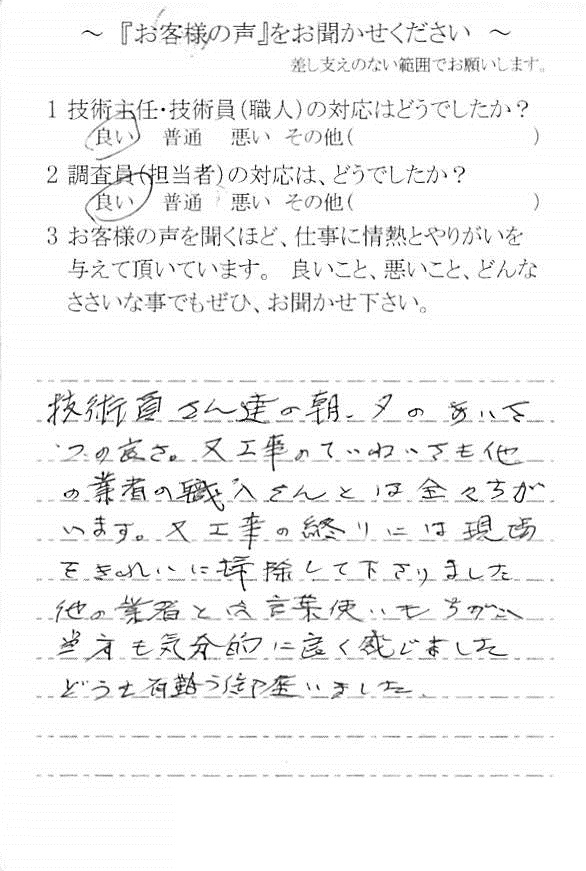 ~ 『お客様の声』をお聞かせください ~
差し支えのない範囲でお願いします。
1 技術主任・技術員(職人)の対応はどうでしたか?
良い 普通 悪い その他( )
2 調査員(担当者)の対応は、どうでしたか?
良い 普通 悪い その他( )
3 お客様の声を聞くほど、仕事に情熱とやりがいを
与えて頂いています。 良いこと、悪いこと、どんな
ささいな事でもぜひ、お聞かせ下さい。
技術員さん達の朝、夕のあいさ
つの良さ。又工事のていねいさも他
の業者の職人さんとは全々ちが
います。又工事の終りには現場
をきれいに掃除して下さりました
他の業者とは言葉使いもちがい
当方も気分的に良く感じました
どうも有難う御座いました。